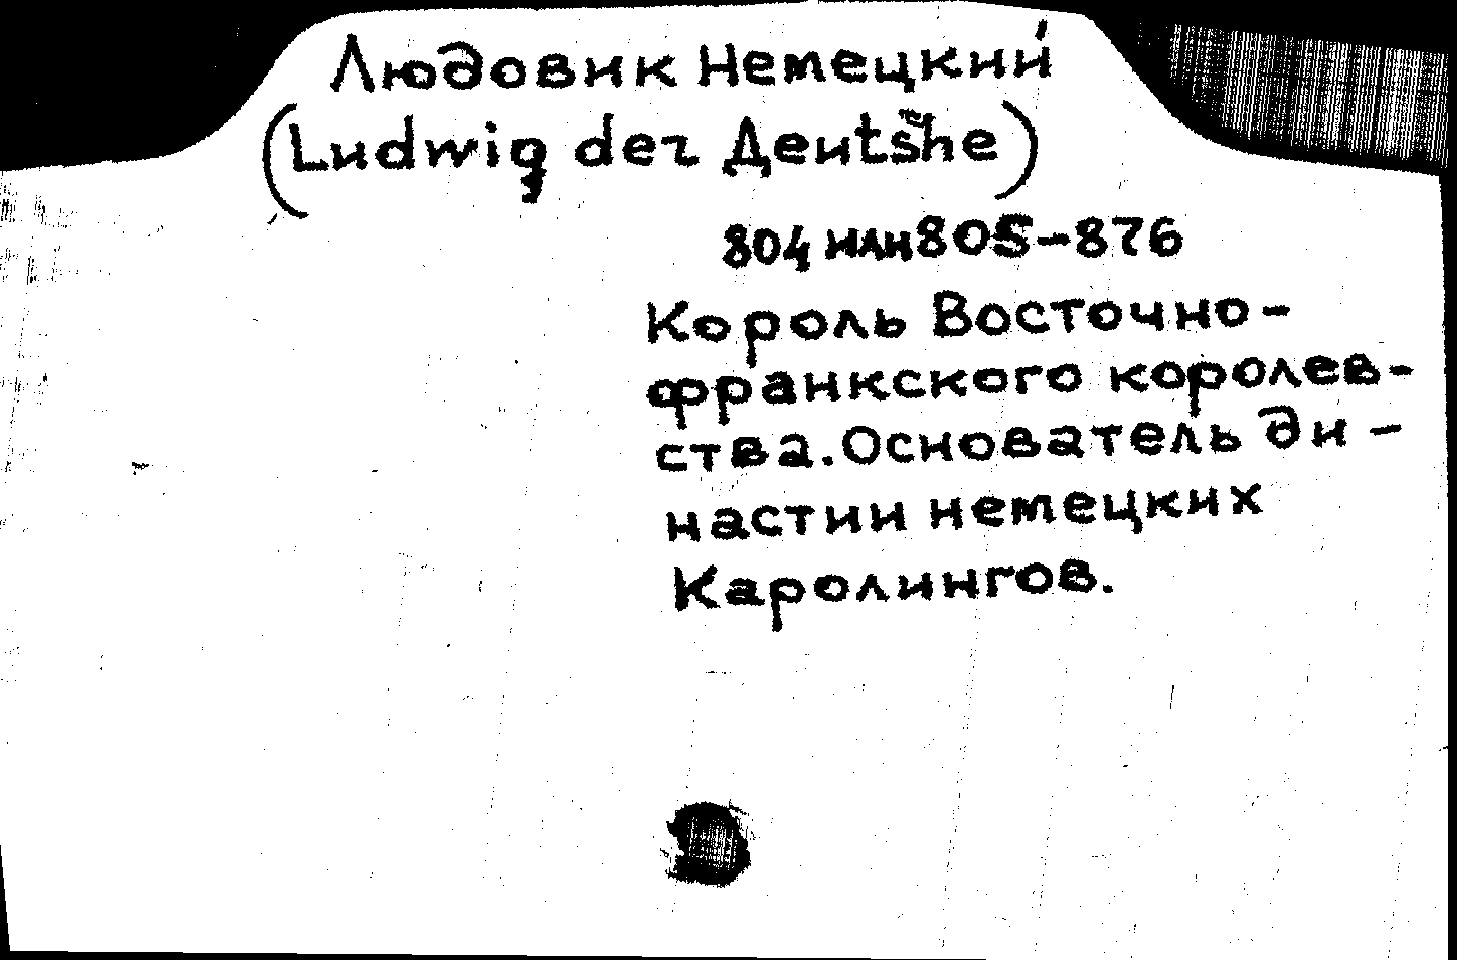 Людовик Немецкий
(Ludwig der Деutsche)
804 или 805-876
Король Восточно-
франкского королев-
ства. Основатель ди-
настии немецких
Каролингов.